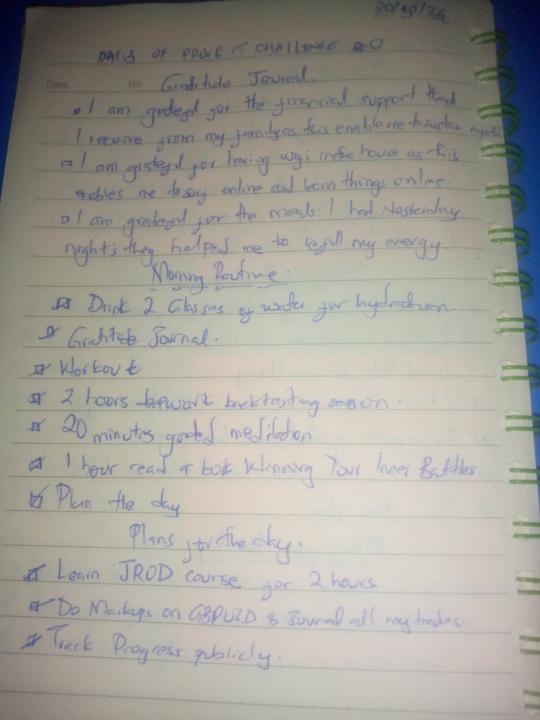 30/10/25
DAY 3 OF PROVE IT CHALLENGE 2.0
Date. No. Gratitude Journal.
I am grateful for the financial support that
I receive from my family as this enable me to sustain myself
I am grateful for having wifi in the house as this
enables me to stay online and learn things online
I am grateful for the meals I had Yesterday
night they helped me to refill my energy.
Morning Routine.
Drink 2 Glasses of water for hydration.
Gratitude Journal.
Workout
2 hours work backtesting session.
20 minutes guided meditation
1 hour read a book Winning Your Inner Battles
Plan the day
Plans for the day.
Learn JROD course for 2 hours
Do Markups on GBPUSD & Journal all my trades.
Track Progress publicly.